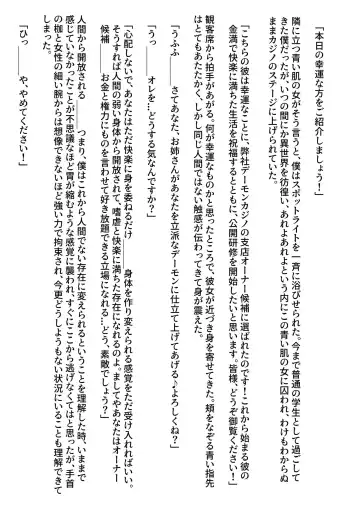 「本日の幸運な方をご紹介しましょう！」
隣に立つ青い肌の女がそう言うと、僕はスポットライトを一斉に浴びせられた。今まで普通の学生として過ごして
きた僕だったが、いつの間にか異世界を彷徨い、あれよあれよという内にこの青い肌の女に囚われ、わけもわからぬ
ままカジノのステージに上げられていた。
「こちらの彼は幸運なことに、弊社デーモンカジノの支店オーナー候補に選ばれたのです！これから始まる彼の
金満で快楽に満ちた生活を祝福するとともに、公開研修を開始したいと思います。皆様、どうぞ御覧ください！」
観客席から拍手があがる。何が幸運なものかと思ったところで、彼女が近づき身を寄せてきた。頬をなぞる青い指先
はとてもあたたかく、しかし同じ人間ではない触感が伝わってきて身が震えた。
「うふふ　さてあなた、お姉さんがあなたを立派なデーモンに仕立て上げてあげる♪よろしくね？」
「うっ　オレを…どうする気なんですか？」
「心配しないで、あなたはただ快楽に身を委ねるだけ　身体を作り変えられる感覚をただ受け入れればいい。
そうすれば人間の弱い身体から開放されて、嗜虐と快楽に満ちた存在になれるのよ。ましてやあなたはオーナー
候補　お金と権力にものを言わせて好き放題できる立場になれる…どう、素敵でしょう？」
人間から開放される　つまり、僕はこれから人間でない存在に変えられるということを理解した時、いままで
感じていなかったことが不思議なほど胃が縮むような感覚に襲われ、すぐにここから逃げなくてはと思ったが、手首
の枷と女性の細い腕からは想像できないほど強い力で拘束され、今更どうしようもない状況にいることも理解できて
しまった。
「ひっ　や、やめてください！」